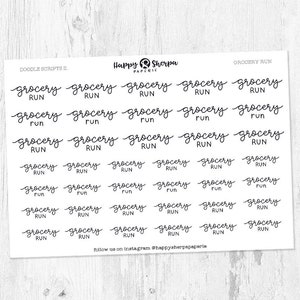 Happy Sherpa
PAPERIE
DOODLE SCRIPTS 2.
GROCERY RUN
grocery grocery grocery grocery grocery
RUN RUN RUN RUN RUN
grocery grocery grocery grocery grocery
run run run run run
grocery grocery grocery grocery grocery
RUN RUN RUN RUN RUN
grocery grocery grocery grocery grocery grocery
RUN RUN RUN RUN RUN RUN
grocery grocery grocery grocery grocery grocery
run run run run run run
grocery grocery grocery grocery grocery grocery
RUN RUN RUN RUN RUN RUN
grocery grocery grocery grocery grocery grocery
RUN RUN RUN RUN RUN RUN
follow us on instagram @happysherpapaperie